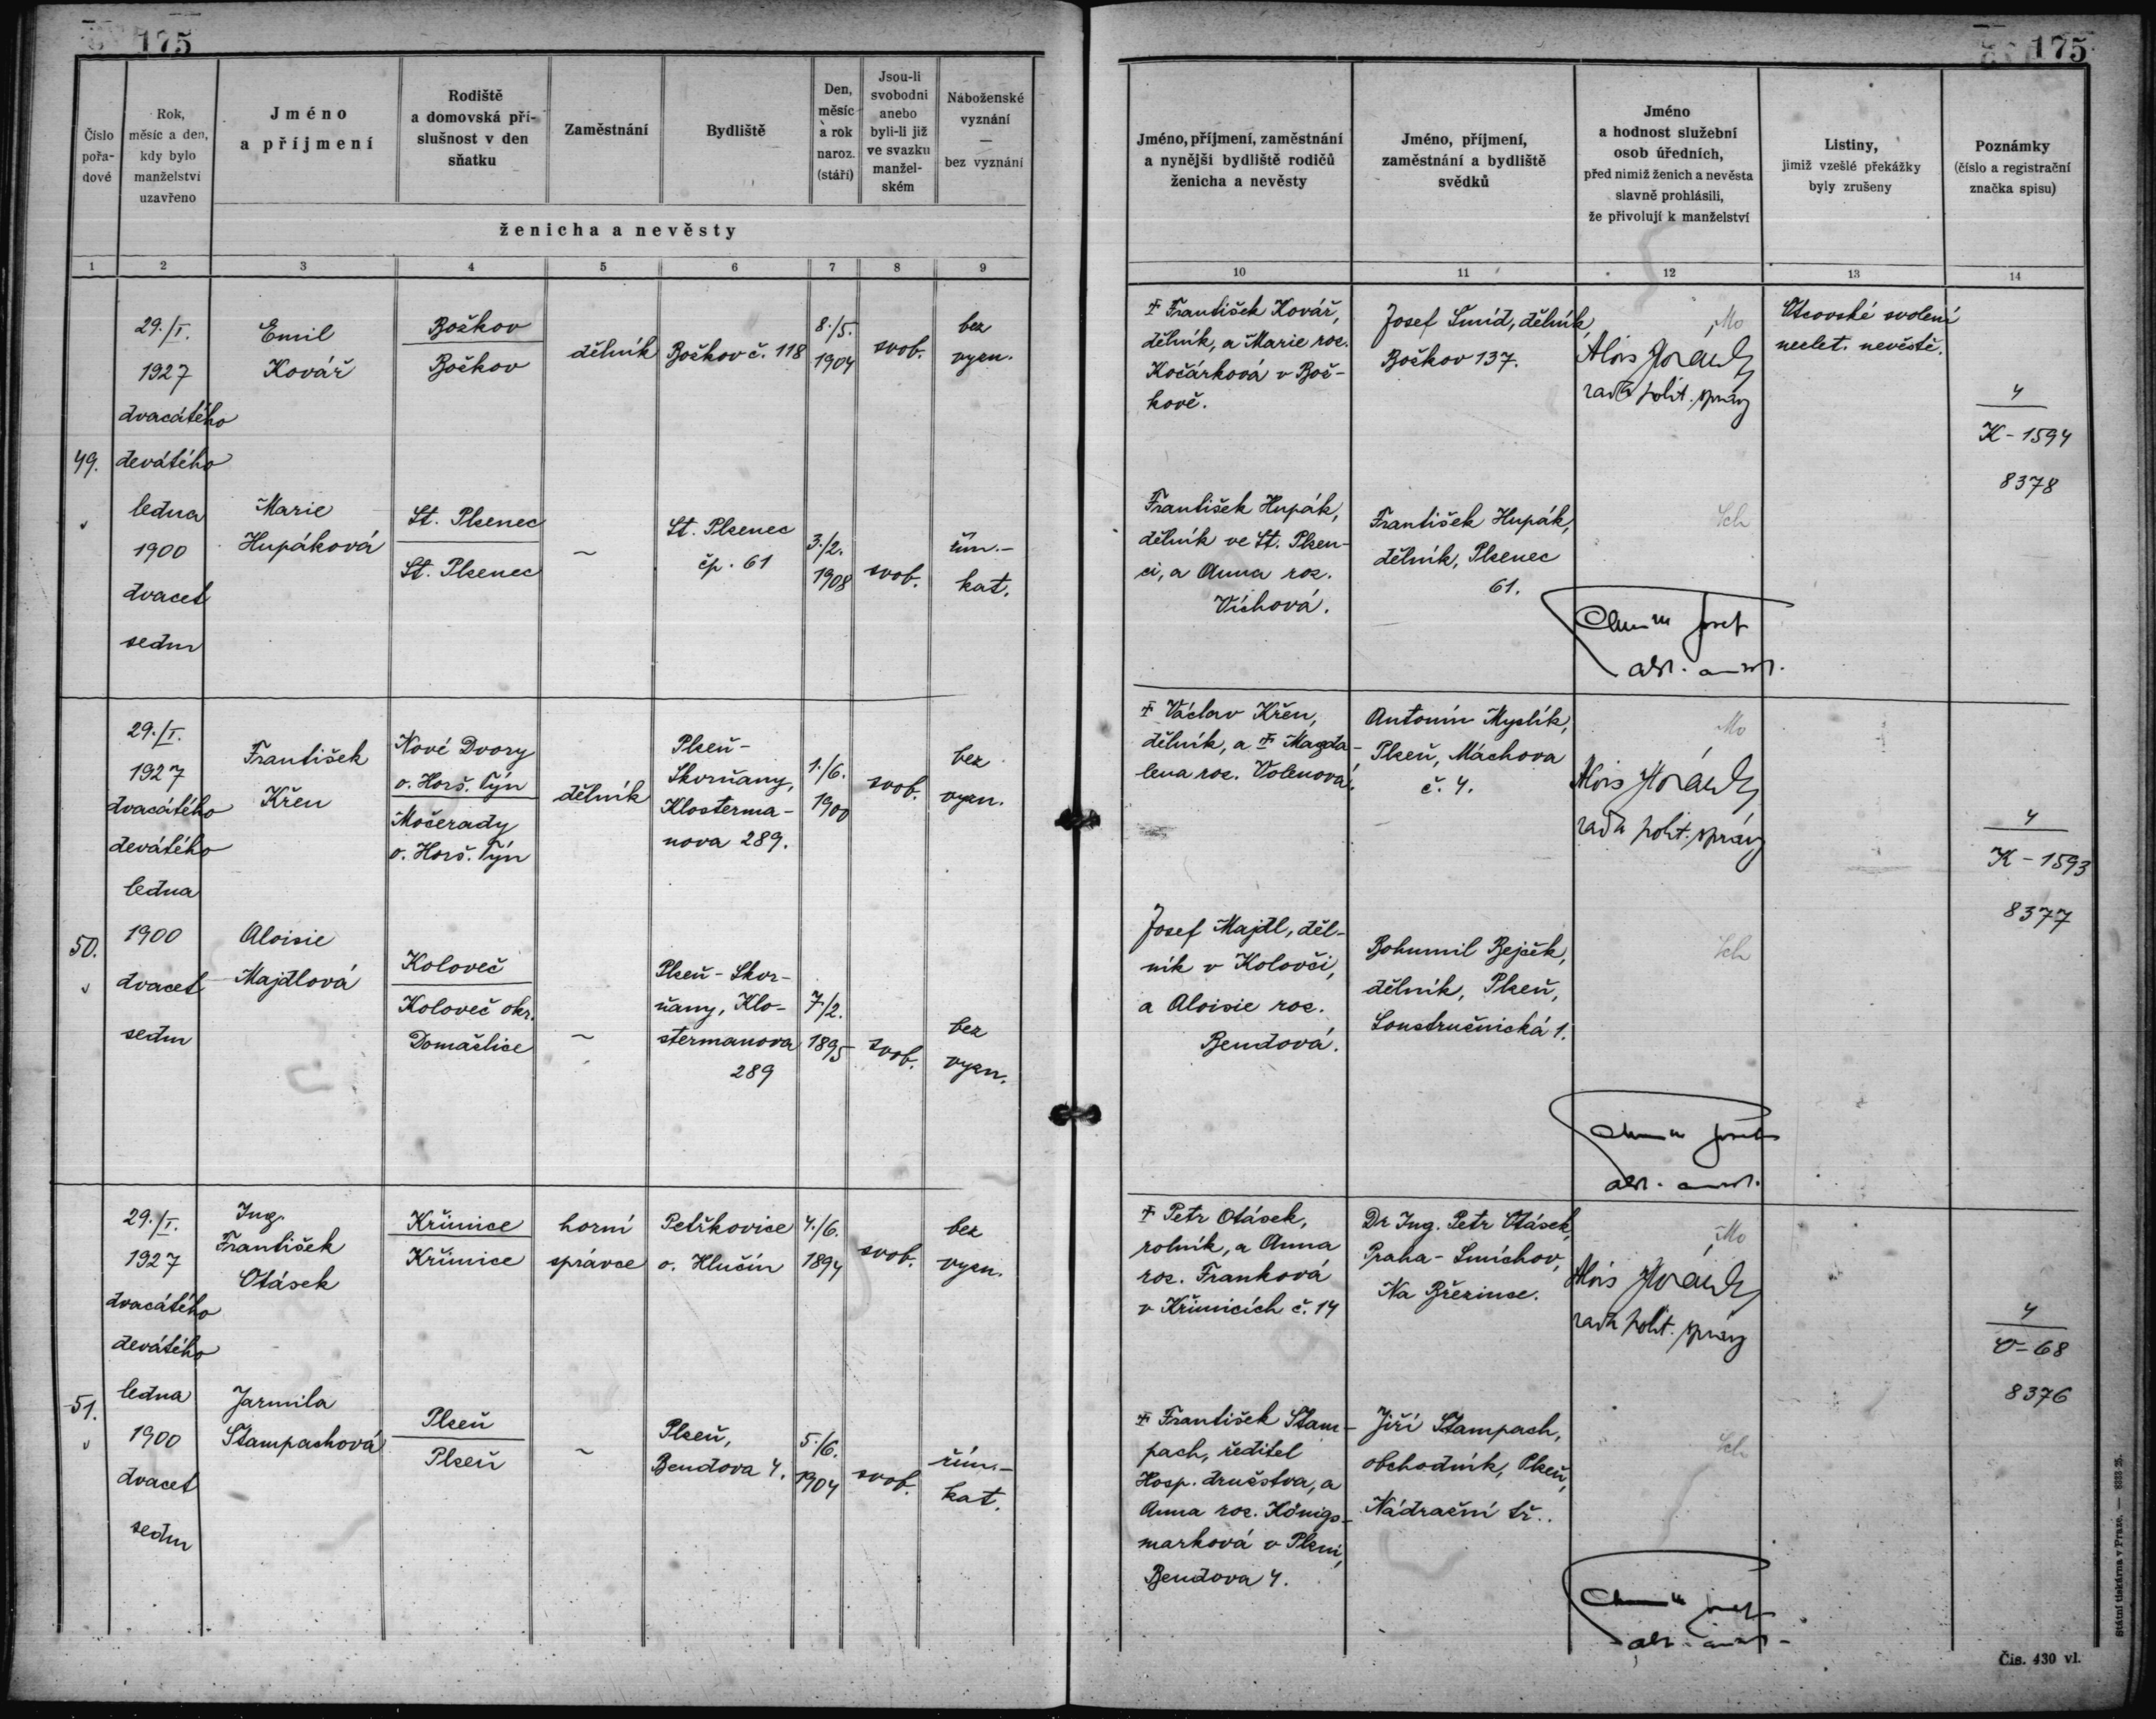 175
Číslo pořa- dové
Rok, měsíc a den, kdy bylo manželství uzavřeno
Jméno a příjmení
Rodiště a domovská pří- slušnost v den sňatku
Zaměstnání
Bydliště
Den, měsíc a rok naroz. (stáří)
Jsou-li svobodni anebo byli-li již ve svazku manžel- ském
Náboženské vyznání — bez vyznání
ženicha a nevěsty
1 2 3 4 5 6 7 8 9
49.
29./I.
1927
dvacátého
devátého
ledna
1900
dvacet
sedm
Emil
Kovář
Božkov
Božkov
dělník
Božkov č. 118
8./5.
1904
svob.
bez
vyzn.
Marie
Hupáková
St. Plzenec
St. Plzenec
~
St. Plzenec
čp. 61
3./2.
1908
svob.
řím.-
kat.
50.
29./I.
1927
dvacátého
devátého
ledna
1900
dvacet
sedm
František
Křen
Nové Dvory
o. Horš. Týn
Močerady
o. Horš. Týn
dělník
Plzeň-
Skvrňany,
Klosterma-
nova 289.
1./6.
1900
svob.
bez
vyzn.
Aloisie
Majdlová
Koloveč
Koloveč okr.
Domažlice
~
Plzeň-Skvr-
ňany, Klo-
stermanova
289
7./2.
1895
svob.
bez
vyzn.
51.
29./I.
1927
dvacátého
devátého
ledna
1900
dvacet
sedm
Ing.
František
Otásek
Křimice
Křimice
horní
správce
Petřkovice
o. Hlučín
4./6.
1894
svob.
bez
vyzn.
Jarmila
Stampachová
Plzeň
Plzeň
~
Plzeň,
Bendova 4.
5./6.
1904
svob.
řím.-
kat.
175
Jméno, příjmení, zaměstnání a nynější bydliště rodičů ženicha a nevěsty
Jméno, příjmení, zaměstnání a bydliště svědků
Jméno a hodnost služební osob úředních, před nimiž ženich a nevěsta slavně prohlásili, že přivolují k manželství
Listiny, jimiž vzešlé překážky byly zrušeny
Poznámky (číslo a registrační značka spisu)
10 11 12 13 14
František Kovář,
dělník, a Marie roz.
Kočárková v Bož-
kově.
Josef Šmíd, dělník,
Božkov 137.
Mo
Alois
rada polit. správy
Otcovské svolení
nezlet. nevěstě.
4
K-1594
8378
František Hupák,
dělník ve St. Plzen-
ci, a Anna roz.
Víchová.
František Hupák,
dělník, Plzenec
61.
Sch
Josef
Václav Křen,
dělník, a Magda-
lena roz. Volenová.
Antonín Myslík,
Plzeň, Máchova
č. 4.
Mo
Alois
rada polit. správy
4
K-1593
8377
Josef Majdl, děl-
ník v Kolovči,
a Aloisie roz.
Bendová.
Bohumil Bejček,
dělník, Plzeň,
Soustružnická 1.
Sch
Josef
Petr Otásek,
rolník, a Anna
roz. Franková
v Křimicích č. 14
Dr Ing. Petr Otásek,
Praha-Smíchov,
Na Březince.
Mo
Alois
rada polit. správy
4
O-68
8376
František Stam-
pach, ředitel
Hosp. družstva, a
Anna roz. Königs-
marková v Plzni,
Bendova 4.
Jiří Stampach,
obchodník, Plzeň,
Nádražní tř..
Sch
Josef
Státní tiskárna v Praze.
Čís. 430 vl.